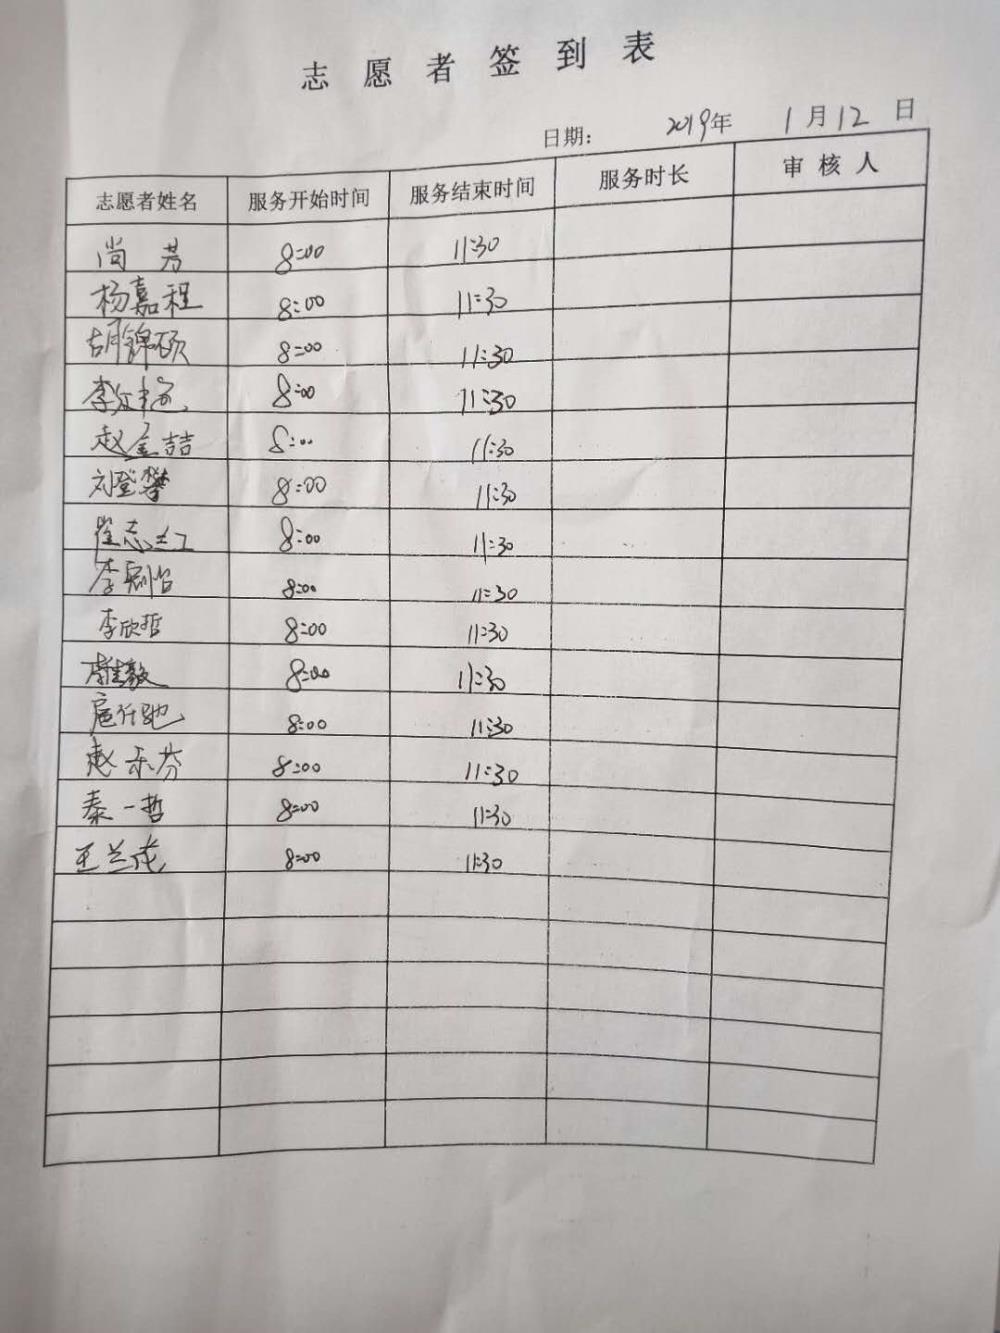 志愿者签到表
日期: 2019年 1月12日
志愿者姓名 服务开始时间 服务结束时间 服务时长 审核人
尚芳 8:00 11:30
杨嘉程 8:00 11:30
胡锦硕 8:00 11:30
李 8:00 11:30
赵金喆 8:00 11:30
刘登攀 8:00 11:30
崔志 8:00 11:30
李 8:00 11:30
李欣哲 8:00 11:30
8:00 11:30
扈任驰 8:00 11:30
赵乐芬 8:00 11:30
秦一哲 8:00 11:30
王兰成 8:00 11:30